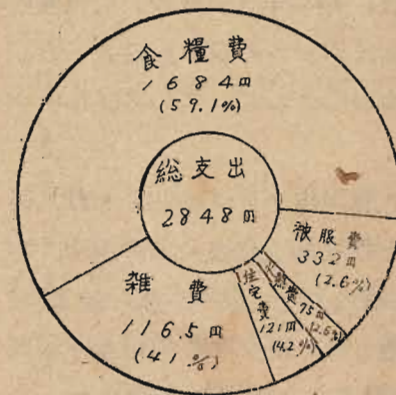 食糧費
1684円
(59.1%)
総支出
2848円
被服費
332円
(2.6%)
光熱費
75円
(2.6%)
住宅費
121円
(4.2%)
雑費
116.5円
(41%)